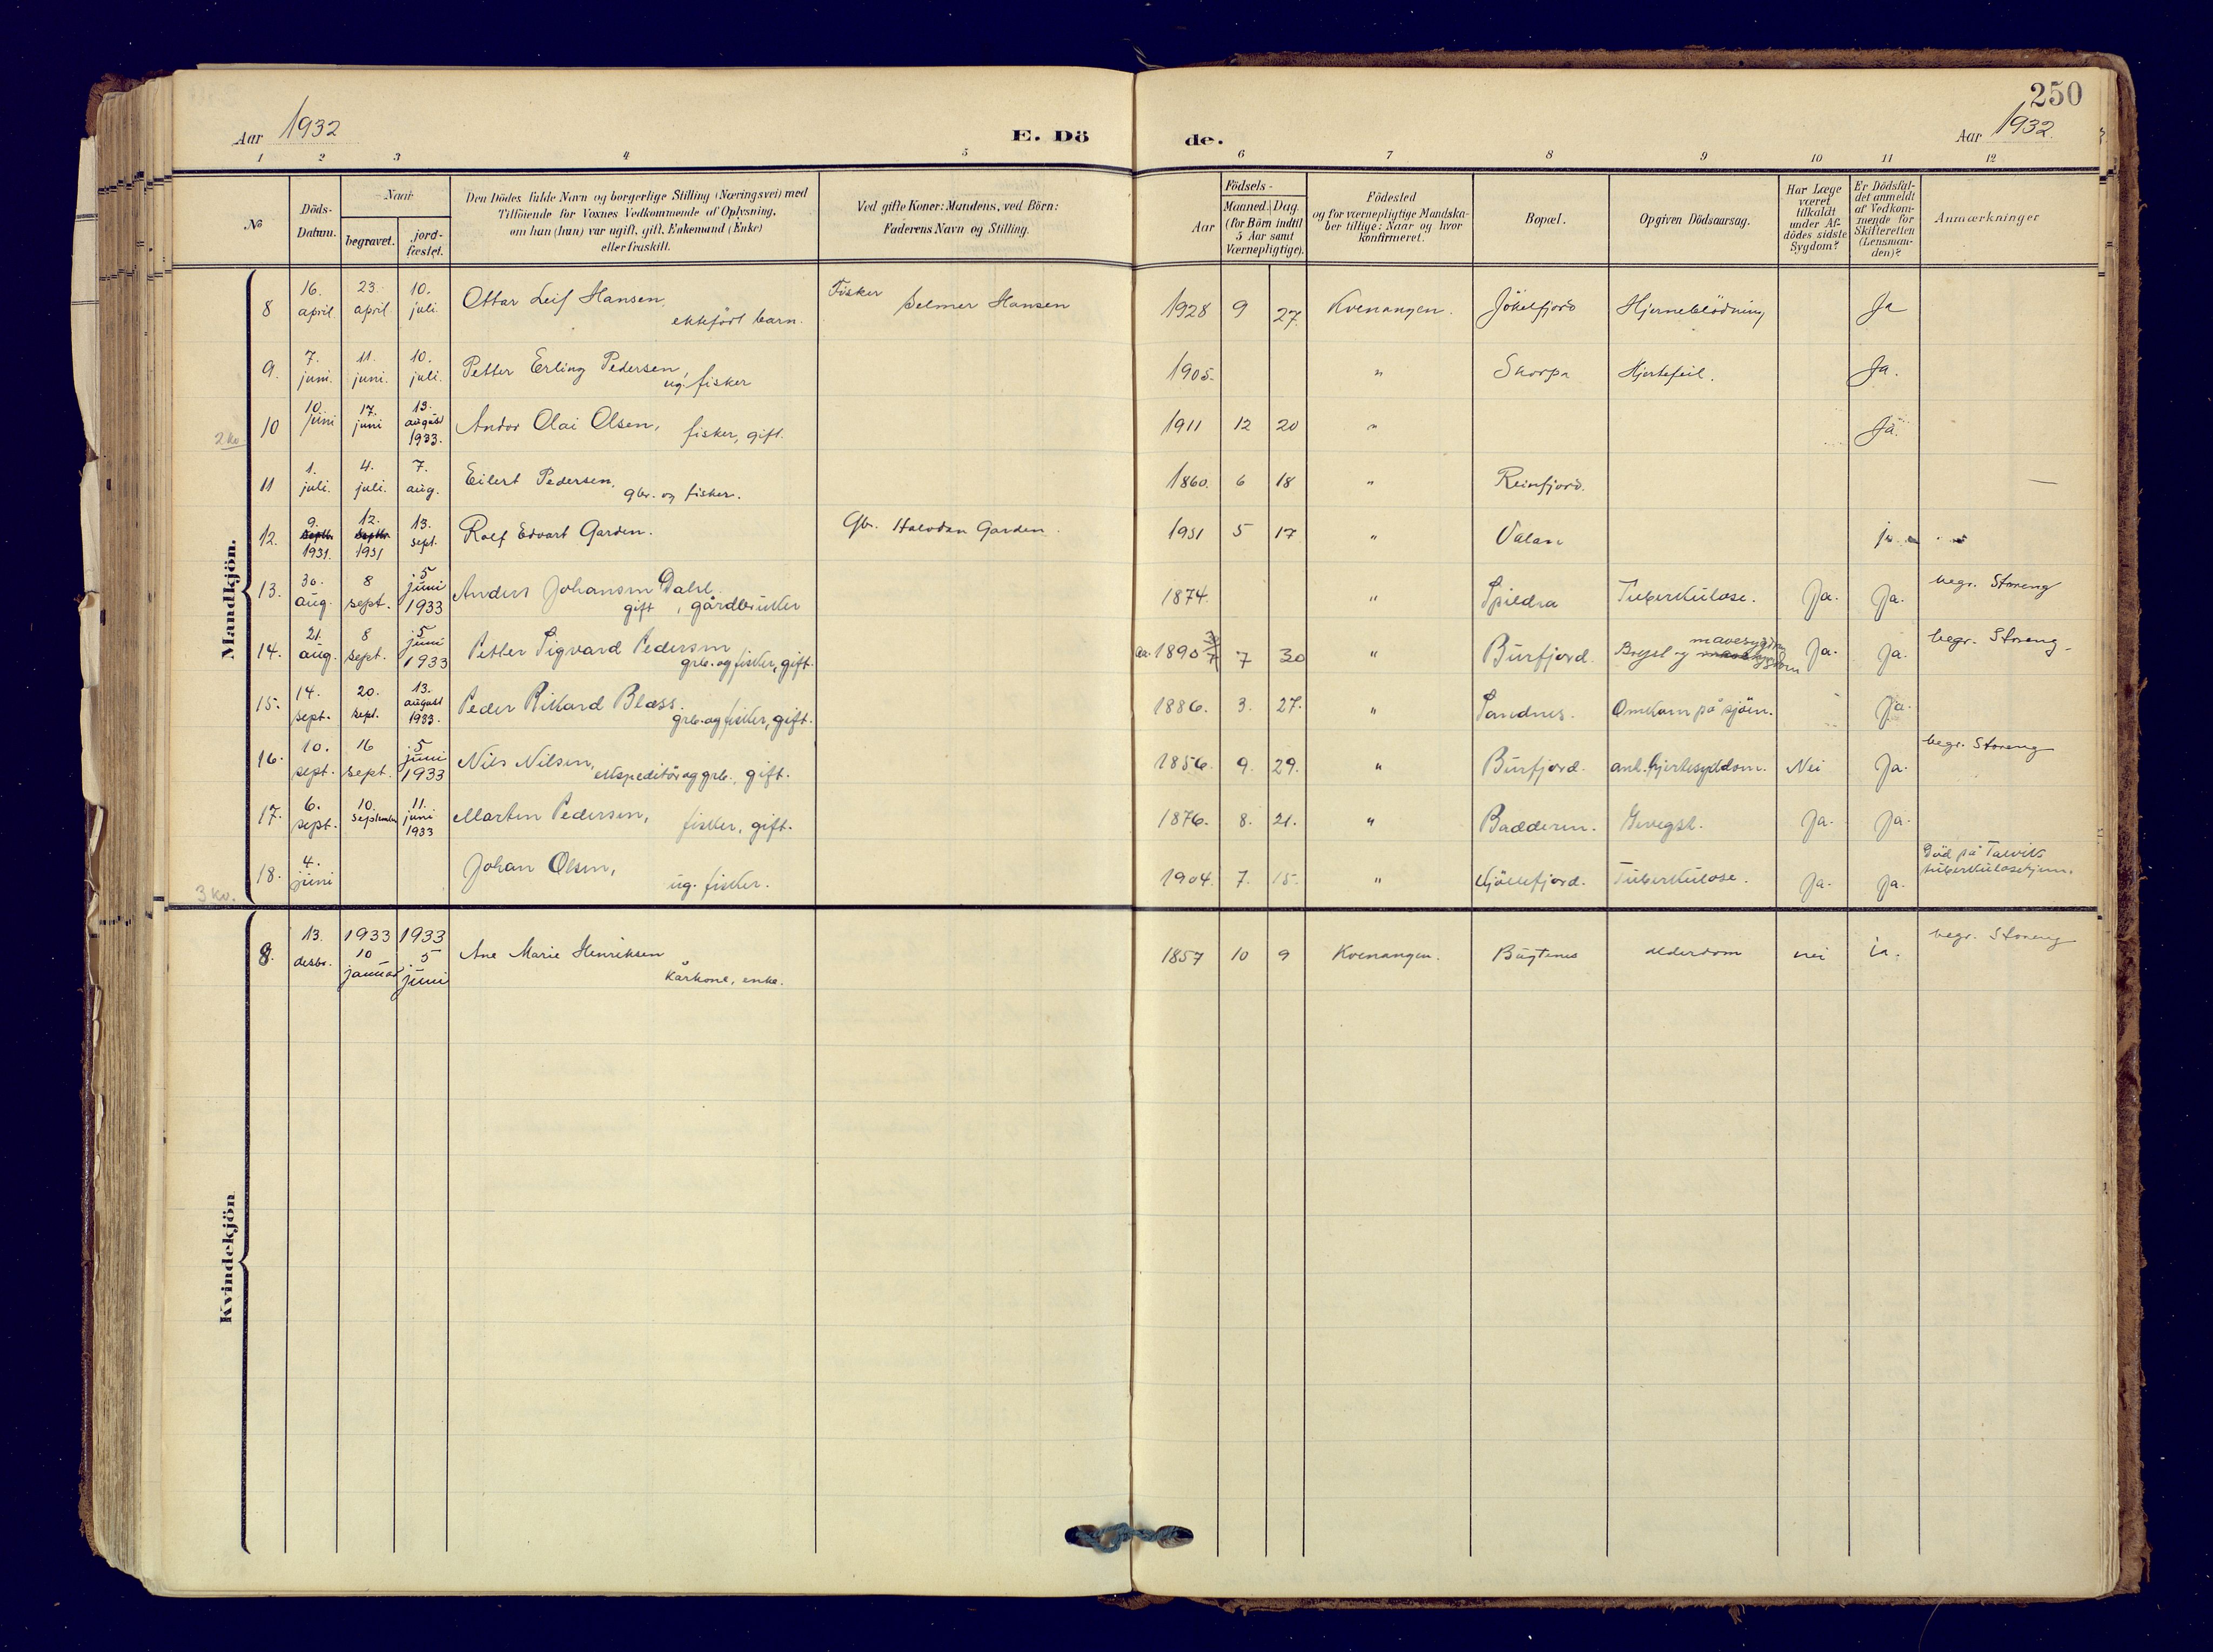 250
Aar 1932
E. Dö
de.
Aar 1932.
1 2 3 4 5 6 7 8 9 10 11 12
No
Döds-
Datum.
Naar
begravet.
jord-
fæstet.
Den Dödes fulde Navn og borgerlige Stilling (Næringsvei) med
Tilföiende for Voxnes Vedkommende af Oplysning,
om han (hun) var ugift, gift, Enkemand (Enke)
eller fraskilt.
Ved gifte Koner: Mandens, ved Börn:
Faderens Navn og Stilling.
Födsels-
Aar
Maaned. Dag.
(for Börn indtil
5 Aar samt
Værnepligtige).
Födested
og for værnepligtige Mandska-
ber tillige: Naar og hvor
konfirmeret.
Bopæl.
Opgiven Dödsaarsag.
Har Læge
været
tilkaldt
under Af-
dödes sidste
Sygdom?
Er Dödsfal-
det anmeldt
af Vedkom-
mende for
Skifteretten
(Lensman-
den)?
Anmærkninger
Mandkjön.
8 16. april 23. april. 10. juli. Ottar Leif Hansen, ektefödt barn. Fisker Selmer Hansen 1928 9 27. Kvenangen. Jökelfjord Hjerneblödning Ja
9. 7. juni. 11. juni. 10. juli. Petter Erling Pedersen, ug. fisker 1905. " Skorpa Hjertefeil. Ja.
2 kv.
10 10. juni 17. juni 13. august 1933. Andor Olai Olsen, fisker, gift. 1911 12 20 " Ja.
11 1. juli. 4. juli. 7. aug. Eilert Pedersen, gbr. og fisker. 1860. 6 18 " Reinfjord. —
12. 9. septbr. 1931. 12. septbr. 1931 13. sept. Rolf Edvart Garden. Gbr. Halvdan Garden. 1931 5 17 " Valan ja
13. 30. aug. 8 sept. 5 juni 1933 Anders Johansen Dahl. gift, gårdbruker 1874. " Spildra Tuberkulose. Ja. Ja. begr. Storeng
14. 21. aug. 8 sept. 5 juni 1933 Petter Sigvard Pedersen grb. og fisker, gift. 1890 7 30 " Burfjord. Bryst og mavesygdom Ja. Ja. begr. Storeng.
15. 14. sept. 20. sept. 13. august 1933. Peder Rikard Blæss. grb. og fisker, gift. 1886. 3. 27. " Sandnes. Omkom på sjöen. Ja.
16. 10. sept. 16 sept. 5 juni 1933 Nils Nilsen, ekspeditör og grb., gift. 1856. 9. 29. " Burfjord. ant. hjertesykdom. Nei Ja. begr. Storeng
17. 6. sept. 10. September 11. juni 1933 Martin Pedersen, fisker, gift. 1876. 8. 21. " Badderen. Ja. Ja.
3 kv.
18. 4. juni Johan Olsen, ug. fisker. 1904. 7. 15. " Kjökkefjord. Tuberkulose. Ja. Ja. Död på Talvik tuberkulosehjem.
Kvindekjön
8. 13. desbr. 1933 10 januar 1933 5 juni Ane Marie Henriksen kårkone, enke. 1857 10 9 Kvenangen. alderdom nei ja. begr. Storeng